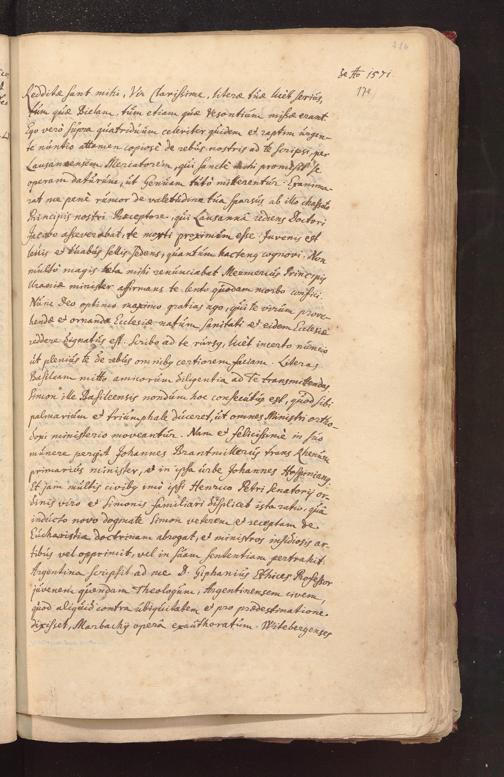 216
de Ao 1571.
174
Redditæ sunt mihi, Vir Clarissime, literæ tuæ licet seriùs,
tùm quæ Bielam, tùm etiam quæ Vesontium missæ erant
Ego verò supra quatriduum celeriter quidem et raptim urgen-
te nuntio attamen copiosè de rebus nostris ad te scripsi, per
Lausannensem Mercatorem, qui sanctè mihi promisit se
operam daturum, ut Genuam tutò mitterentur.
at me penè rumor de valetudine tua sparsus ab illo
Principis nostri Præceptore, qui Lausannâ rediens Doctori
Jacobo asseverabat, te morti proximum esse. Juvenis est
levis et duabus sellis sedens, quantùm hactenus cognovi. Non
multò magis læta mihi renunciabat Mermerius Principis
minister affirmans te lento quodam morbo confici.
Nunc Deo optimo maximo gratias ago, qui te virum
et ornandæ Ecclesiæ natum sanitati et eidem Ecclesiæ
reddere dignatus est. Scribo ad te rursus, licet incerto nuncio
ut pleniùs te de rebus omnibus certiorem faciam. Literas
Basileam mitto amicorum diligentia ad te transmittendas
Simon ille Basileensis nondum hoc consecutus est, quod sibi
palmarium et triumphale duceret, ut omnes Ministri ortho-
doxi ministerio moveantur. Nam et felicissimè in suo
munere pergit Johannes Brantmillerus trans Rhenum
primarius minister, et in ipsa urbe Johannes
Et jam multis civibus imò ipsi Henrico Petri Senatorij or-
dinis viro et Simonis familiari displicet ista ratio, quâ
inducto novo dogmate Simon veterem et receptam de
Eucharistia doctrinam abrogat, et ministros insidiosis ar-
tibus vel opprimit, vel in suam sententiam pertrahit.
Argentina scripsit ad me D. Giphanius Ethices Professor
juvenem quendam Theologum, Argentinensem civem,
quod aliquid contra ubiquitatem et pro prædestinatione
dixisset, Marbachij operâ exauthoratum. Witebergenses